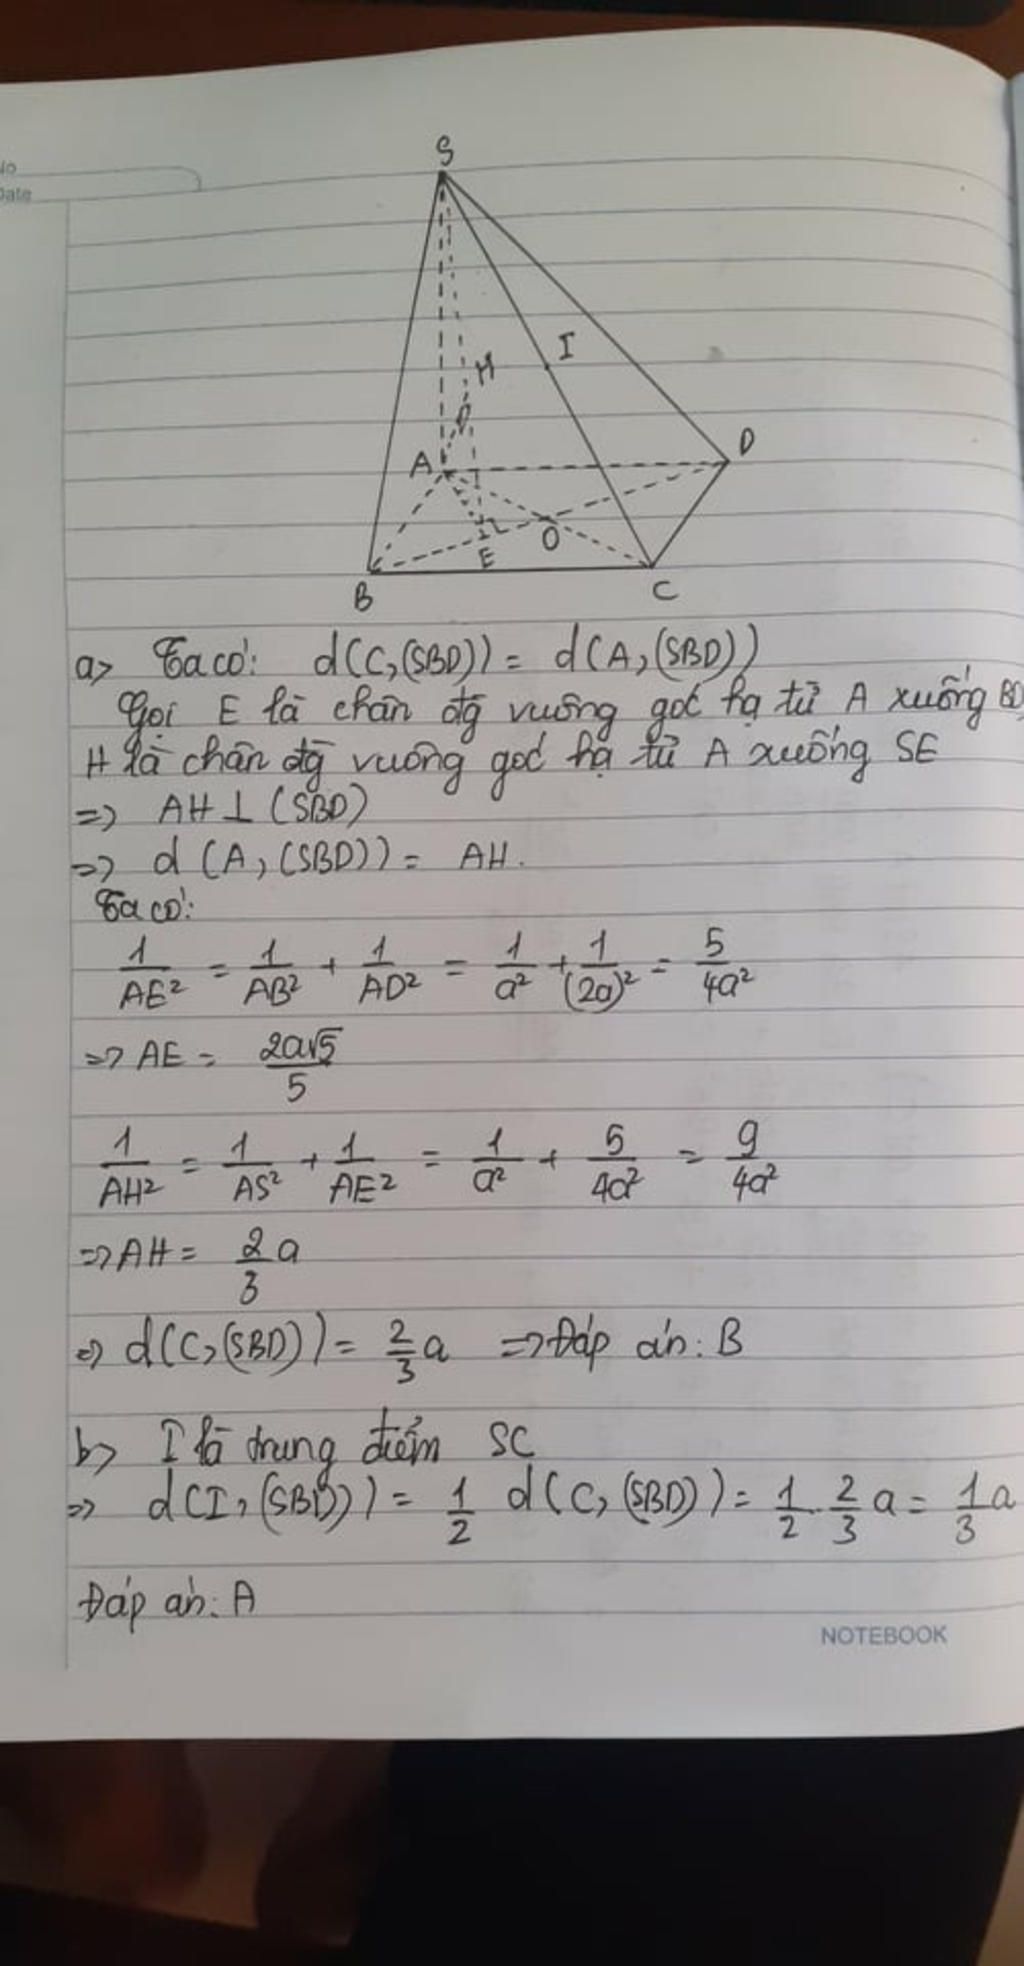 No
Date
S
H
I
A
D
E
O
B
C
a> Ta có: d(C,(SBD)) = d(A,(SBD))
Gọi E là chân đg vuông góc hạ từ A xuống BD,
H là chân đg vuông góc hạ từ A xuống SE
=> AH ⊥ (SBD)
=> d(A,(SBD)) = AH.
Ta có:
1/AE² = 1/AB² + 1/AD² = 1/a² + 1/(2a)² = 5/4a²
=> AE = 2a√5/5
1/AH² = 1/AS² + 1/AE² = 1/a² + 5/4a² = 9/4a²
=> AH = 2/3 a
=> d(C,(SBD)) = 2/3 a => Đáp án: B
b> I là trung điểm SC
=> d(I,(SBD)) = 1/2 d(C,(SBD)) = 1/2 . 2/3 a = 1/3 a
Đáp án: A
NOTEBOOK